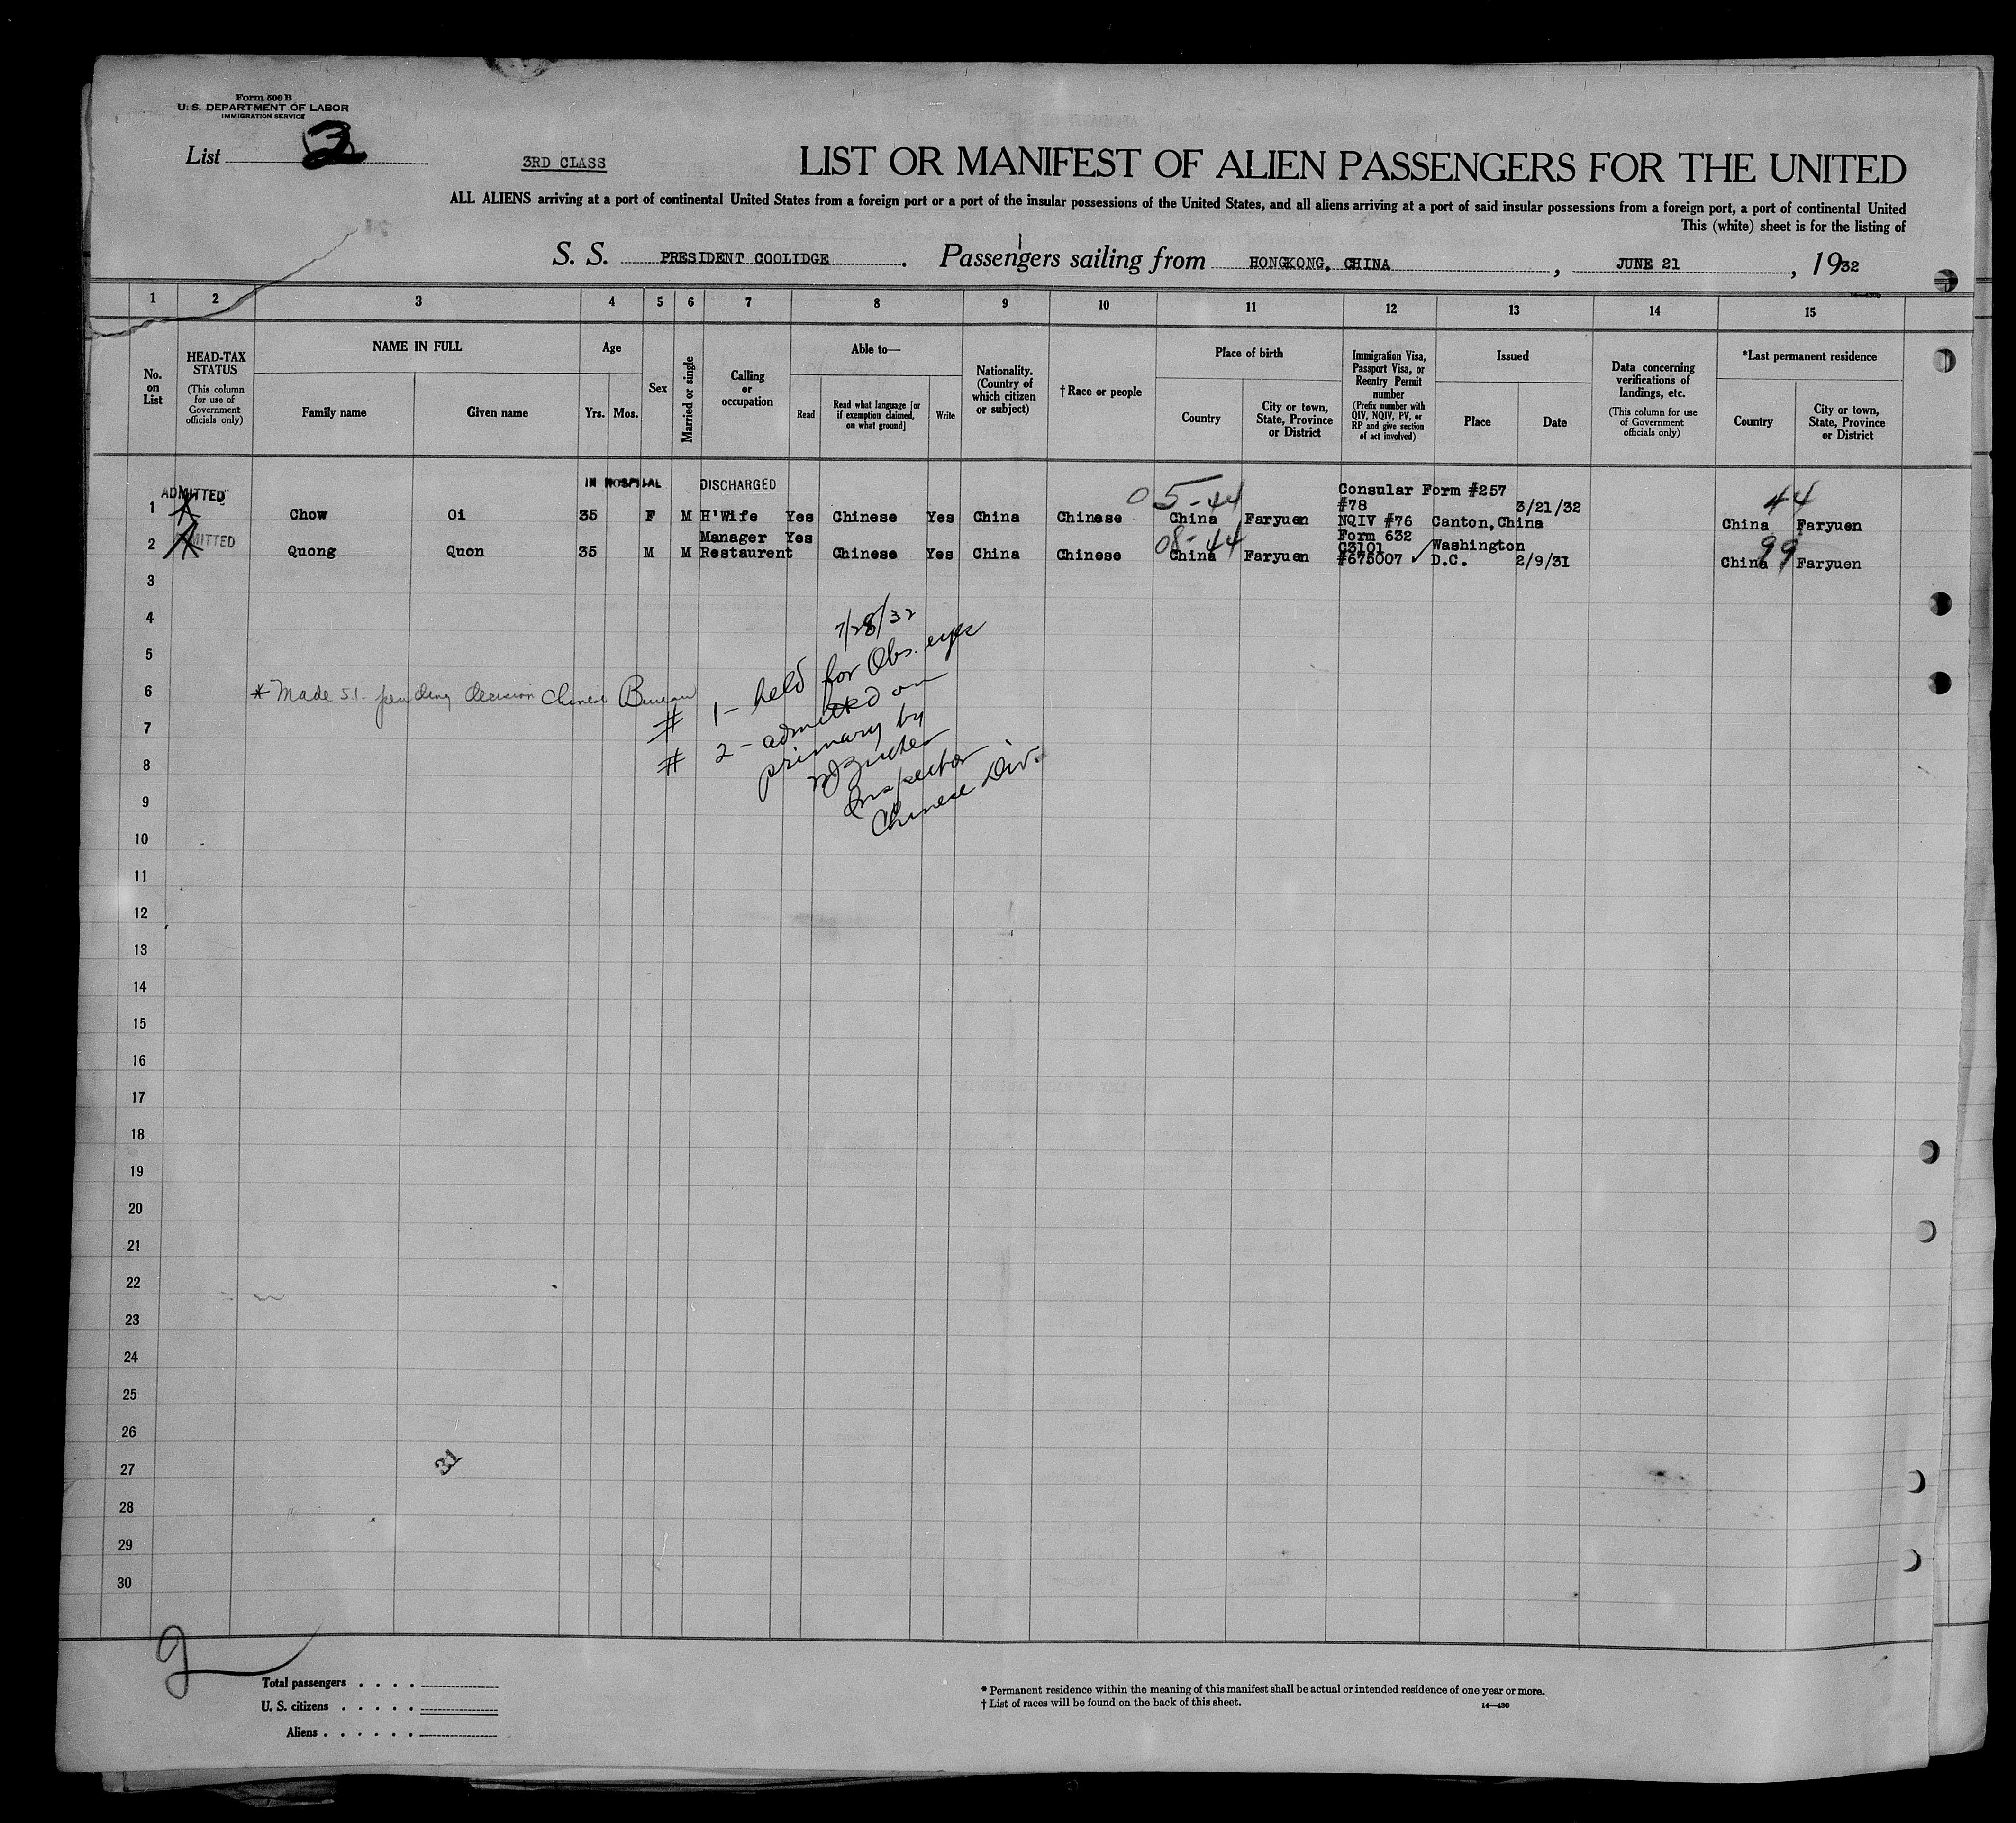 Form 500 B
U. S. DEPARTMENT OF LABOR
IMMIGRATION SERVICE
List 3
3RD CLASS
LIST OR MANIFEST OF ALIEN PASSENGERS FOR THE UNITED
ALL ALIENS arriving at a port of continental United States from a foreign port or a port of the insular possessions of the United States, and all aliens arriving at a port of said insular possessions from a foreign port, a port of continental United
This (white) sheet is for the listing of
S. S. PRESIDENT COOLIDGE. Passengers sailing from HONGKONG, CHINA, JUNE 21, 1932
1 2 3 4 5 6 7 8 9 10 11 12 13 14 15
No. on List
HEAD-TAX STATUS (This column for use of Government officials only)
NAME IN FULL
Family name
Given name
Age
Yrs. Mos.
Sex
Married or single
Calling or occupation
Able to—
Read
Read what language [or if exemption claimed, on what ground]
Write
Nationality. (Country of which citizen or subject)
† Race or people
Place of birth
Country
City or town, State, Province or District
Immigration Visa, Passport Visa, or Reentry Permit number (Prefix number with QIV, NQIV, PV, or RP and give section of act involved)
Issued
Place
Date
Data concerning verifications of landings, etc. (This column for use of Government officials only)
*Last permanent residence
Country
City or town, State, Province or District
ADMITTED IN HOSPITAL DISCHARGED 05-44 Consular Form #257 44
#78 3/21/32
1 Chow Oi 35 F M H'Wife Yes Chinese Yes China Chinese China Faryuen NQIV #76 Canton, China China Faryuen
ADMITTED Manager Yes 08-44 Form 632 99
2 Quong Quon 35 M M Restaurent Chinese Yes China Chinese China Faryuen C3101 Washington
#675007 ✓ D.C. 2/9/31 China Faryuen
3
4
7/28/32
5
6 * Made S.I. pending decision Chinese Bureau
# 1 - held for Obs. eyes
7
# 2 - admitted on
8
primary by
9
Inspector
Chinese Div.
10
11
12
13
14
15
16
17
18
19
20
21
22
23
24
25
26
27
31
28
29
30
2
Total passengers . . . .
U. S. citizens . . . . .
Aliens . . . . . .
* Permanent residence within the meaning of this manifest shall be actual or intended residence of one year or more.
† List of races will be found on the back of this sheet.
14—430